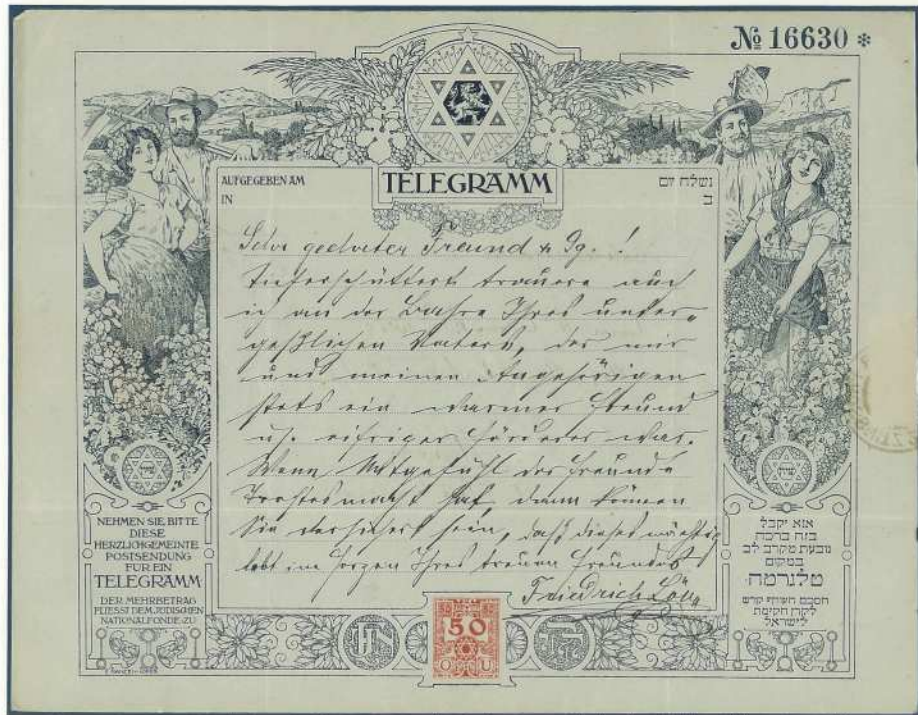 № 16630 *
AUFGEGEBEN AM
IN
TELEGRAMM
נשלח יום
ב
Sehr geehrter Freund u Jg. !
Tieferschüttert trauere auch
ich an der Bahre Ihres unver-
geßlichen Vaters, der mir
und meinen Angehörigen
stets ein warmer Freund
u. eifriger Förderer war.
Wenn Mitgefühl des Freunds
Trostesmacht hat, dann können
Sie versichert sein, daß dieses mächtig
lebt im Herzen Ihres treuen Freundes
Friedrich Löwy
NEHMEN SIE BITTE
DIESE
HERZLICHGEMEINTE
POSTSENDUNG
FÜR EIN
TELEGRAMM
DER MEHRBETRAG
FLIESST DEM JÜDISCHEN
NATIONALFONDE ZU
אנא יקבל
בזה ברכה
נובעת מקרב לב
במקום
טלגרמה
לקרן הקימת
לישראל
50